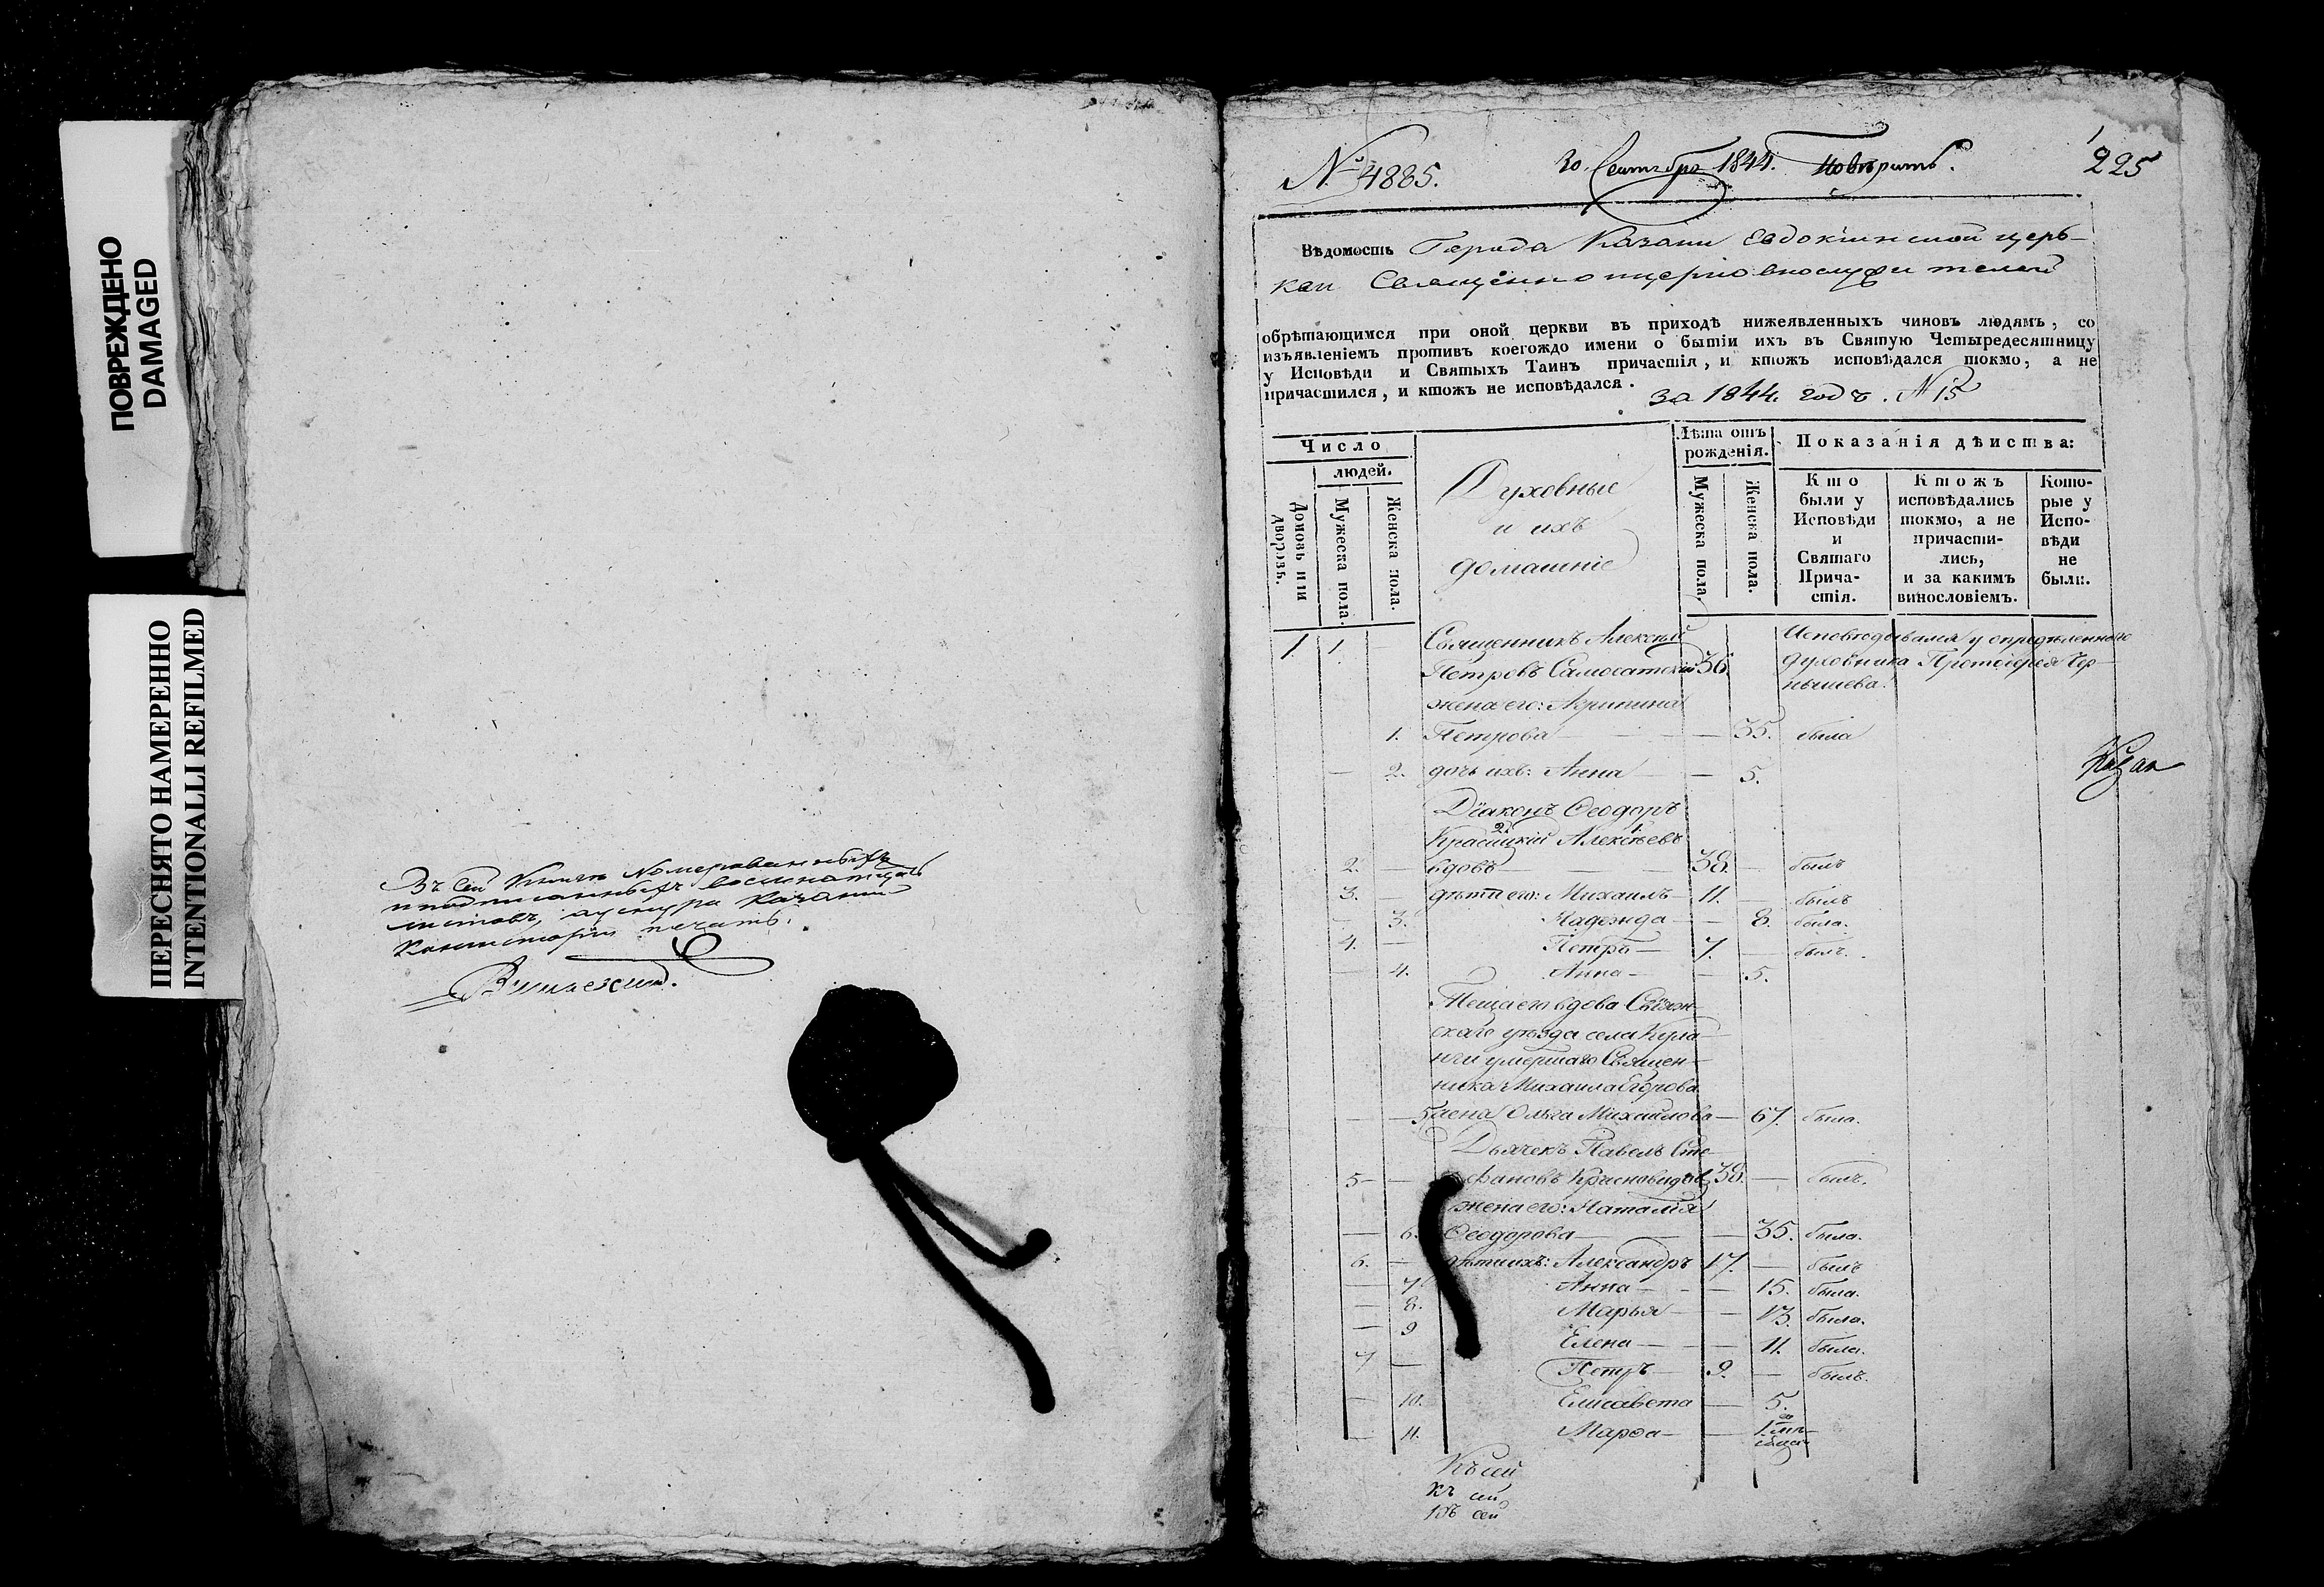 ПОВРЕЖДЕНО
DAMAGED
ПЕРЕСНЯТО НАМЕРЕННО
INTENTIONALLI REFILMED
Въ сей Книге Номерованныхъ
и подписанныхъ восемнатцать
листовъ, а у шнура Казанской
Консисторіи печать.
№ 4885.
30 Сентября 1844. Повѣрить.
225
Вѣдомость Города Казани Евдокіинской церь-
кви Священноцерковнослужителей
обрѣтающимся при оной церкви въ приходѣ нижеявленныхъ чиновъ людямъ, со
изъявленіемъ противъ коегождо имени о бытіи ихъ въ Святую Четыредесятницу
у Исповѣди и Святыхъ Таинъ причастія, и ктожъ исповѣдался токмо, а не
причастился, и ктожъ не исповѣдался.
за 1844. годъ. № 15
Число
людей.
Домовъ или дворовъ.
Мужеска пола.
Женска пола.
Духовные
и ихъ
домашніе
Лѣта отъ
рожденія.
Мужеска пола.
Женска пола.
Показанія дѣйства:
Кто
были у
Исповѣди
и
Святаго
Прича-
стія.
Ктожъ
исповѣдались
токмо, а не
причасти-
лись,
и за какимъ
винословіемъ.
Кото-
рые у
Испо-
вѣди
не
были.
1. 1. — Священникъ Алексѣй Исповѣдывался у опредѣленнаго
Петровъ Самосатскій 36. духовника Протоіерея Чер-
жена его: Агрипина нышева.
1. Петрова — — 35. была
— 2. дочь ихъ: Анна — — 5.
Діаконъ Ѳеодоръ
2. 1.
Красицкій Алексѣевъ
2. — вдовъ — 38. — былъ
3. — дѣти его: Михаилъ — 11. — былъ
— 3. Надежда — — 8. была.
4. — Петръ — 7. — былъ.
— 4. Анна — — 5.
Теща его вдова Свіяж-
скаго уѣзда села Кула-
нги умершаго Священ-
ника Михаила Егорова
— — 5. жена Ольга Михайлова — 67. была.
Дьячекъ Павелъ Сте-
5 — — фановъ Красновидовъ 38. — былъ.
жена его: Наталія
— 6. Ѳеодорова — — 35. была.
6. — дѣти ихъ: Александръ 17. — былъ
— 7 Анна — — 15. была.
— 8. Марья — — 13. была.
— 9 Елена — — 11. была.
7 — Петръ — 9. — былъ.
— 10. Елисавета — 5.
— 11. Марѳа — —
Казан
Къ сей
къ сей
Къ сей